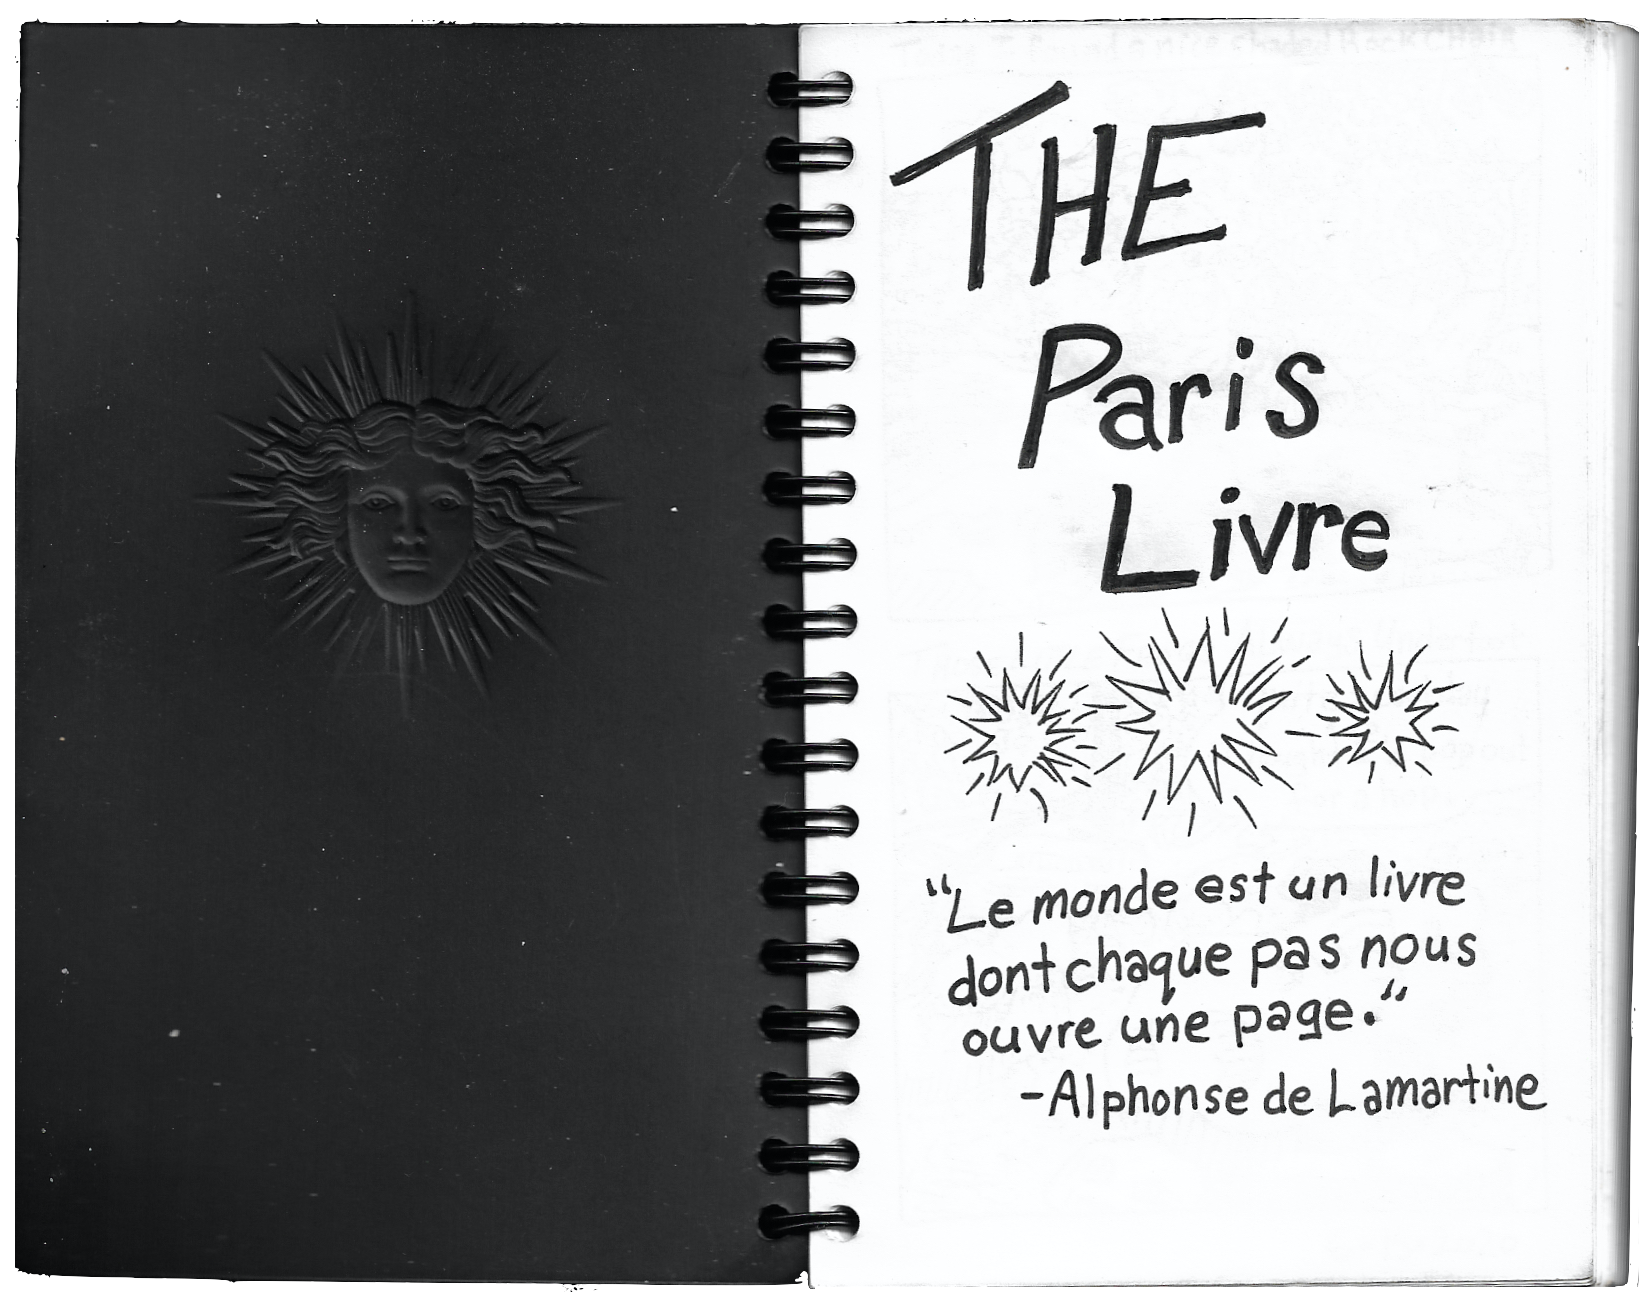 THE
Paris
Livre
“Le monde est un livre
dont chaque pas nous
ouvre une page.“
-Alphonse de Lamartine